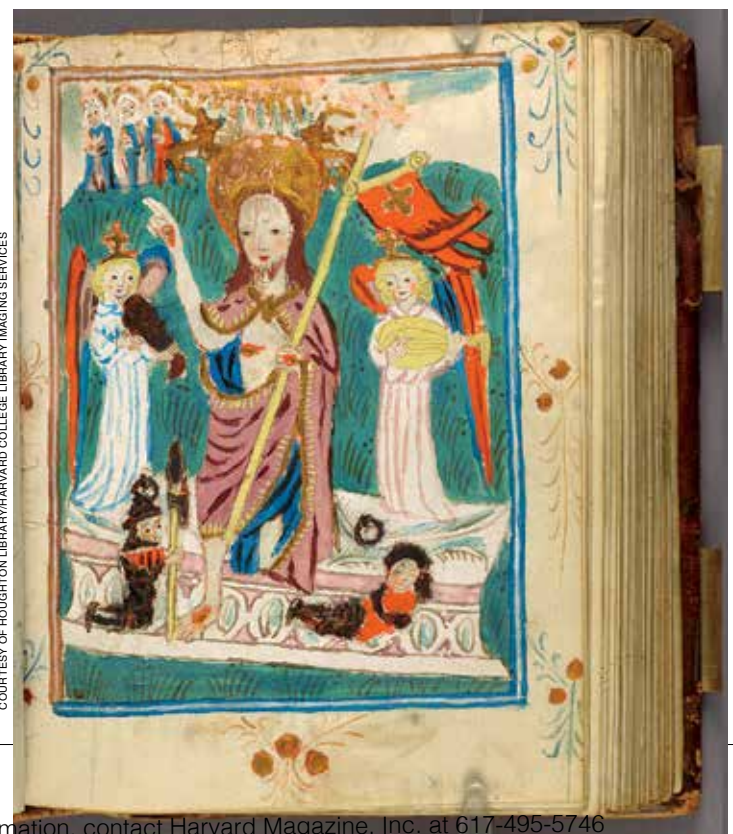 COURTESY OF HOUGHTON LIBRARY/HARVARD COLLEGE LIBRARY IMAGING SERVICES
mation, contact Harvard Magazine, Inc. at 617-495-5746